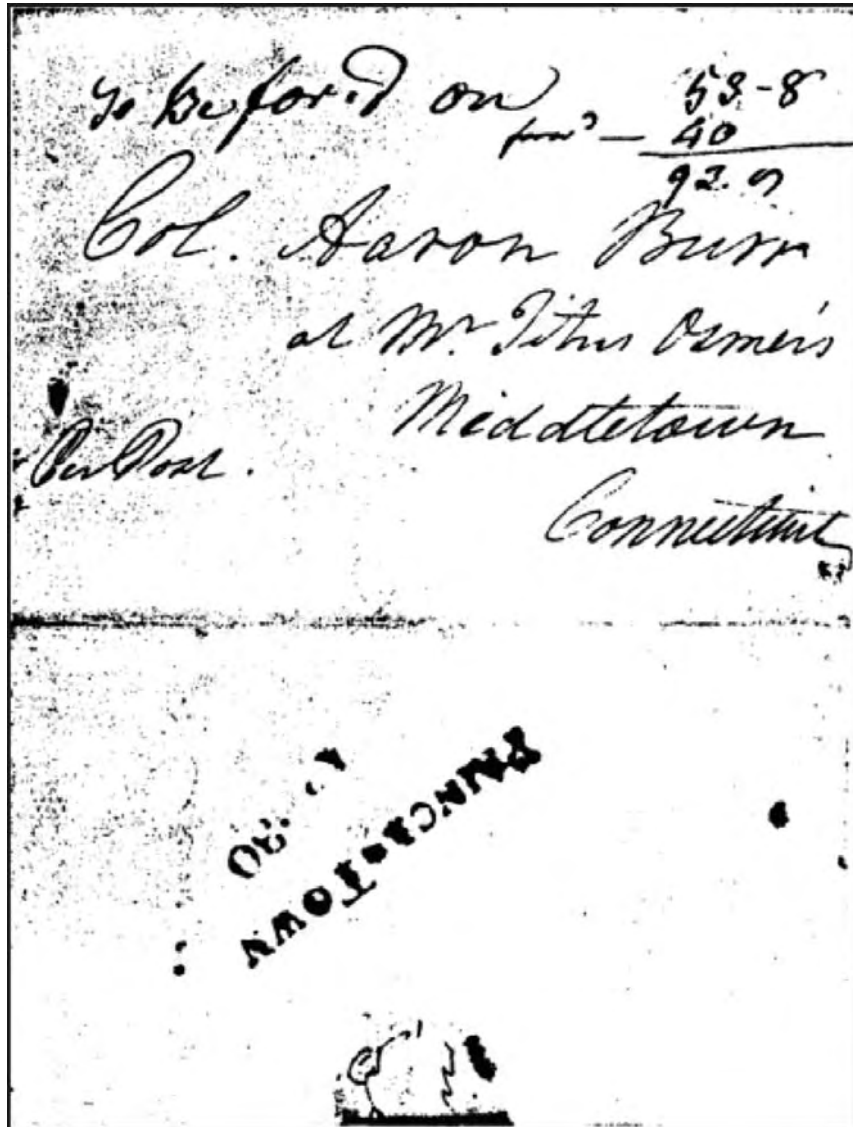 To be for.d on 53-8
for.d — 40
Col. Aaron Burr
at Mr. Titus Osmer's
Middletown
Per Post.
Connecticut
PRINCE-TOWN
30